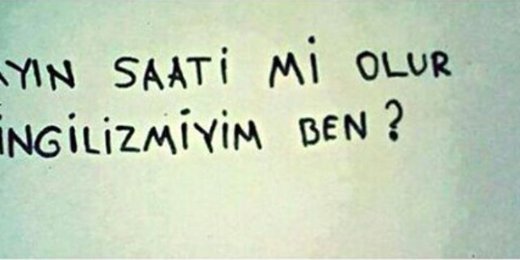 YIN SAATİ Mİ OLUR
İNGİLİZMİYİM BEN?